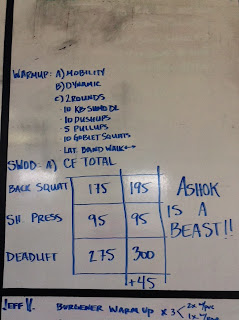 WARMUP: A) MOBILITY
B) DYNAMIC
C) 2 ROUNDS
- 10 KB SUMO DL
- 10 PUSHUPS
- 5 PULLUPS
- 10 GOBLET SQUATS
- LAT. BAND WALK ↔
SWOD: A) CF TOTAL
BACK SQUAT 175 195
SH. PRESS 95 95
DEADLIFT 275 300
+45
ASHOK
IS A
BEAST!!
JEFF V. BURGENER WARM UP x 3 < 2x w/PVC
1x